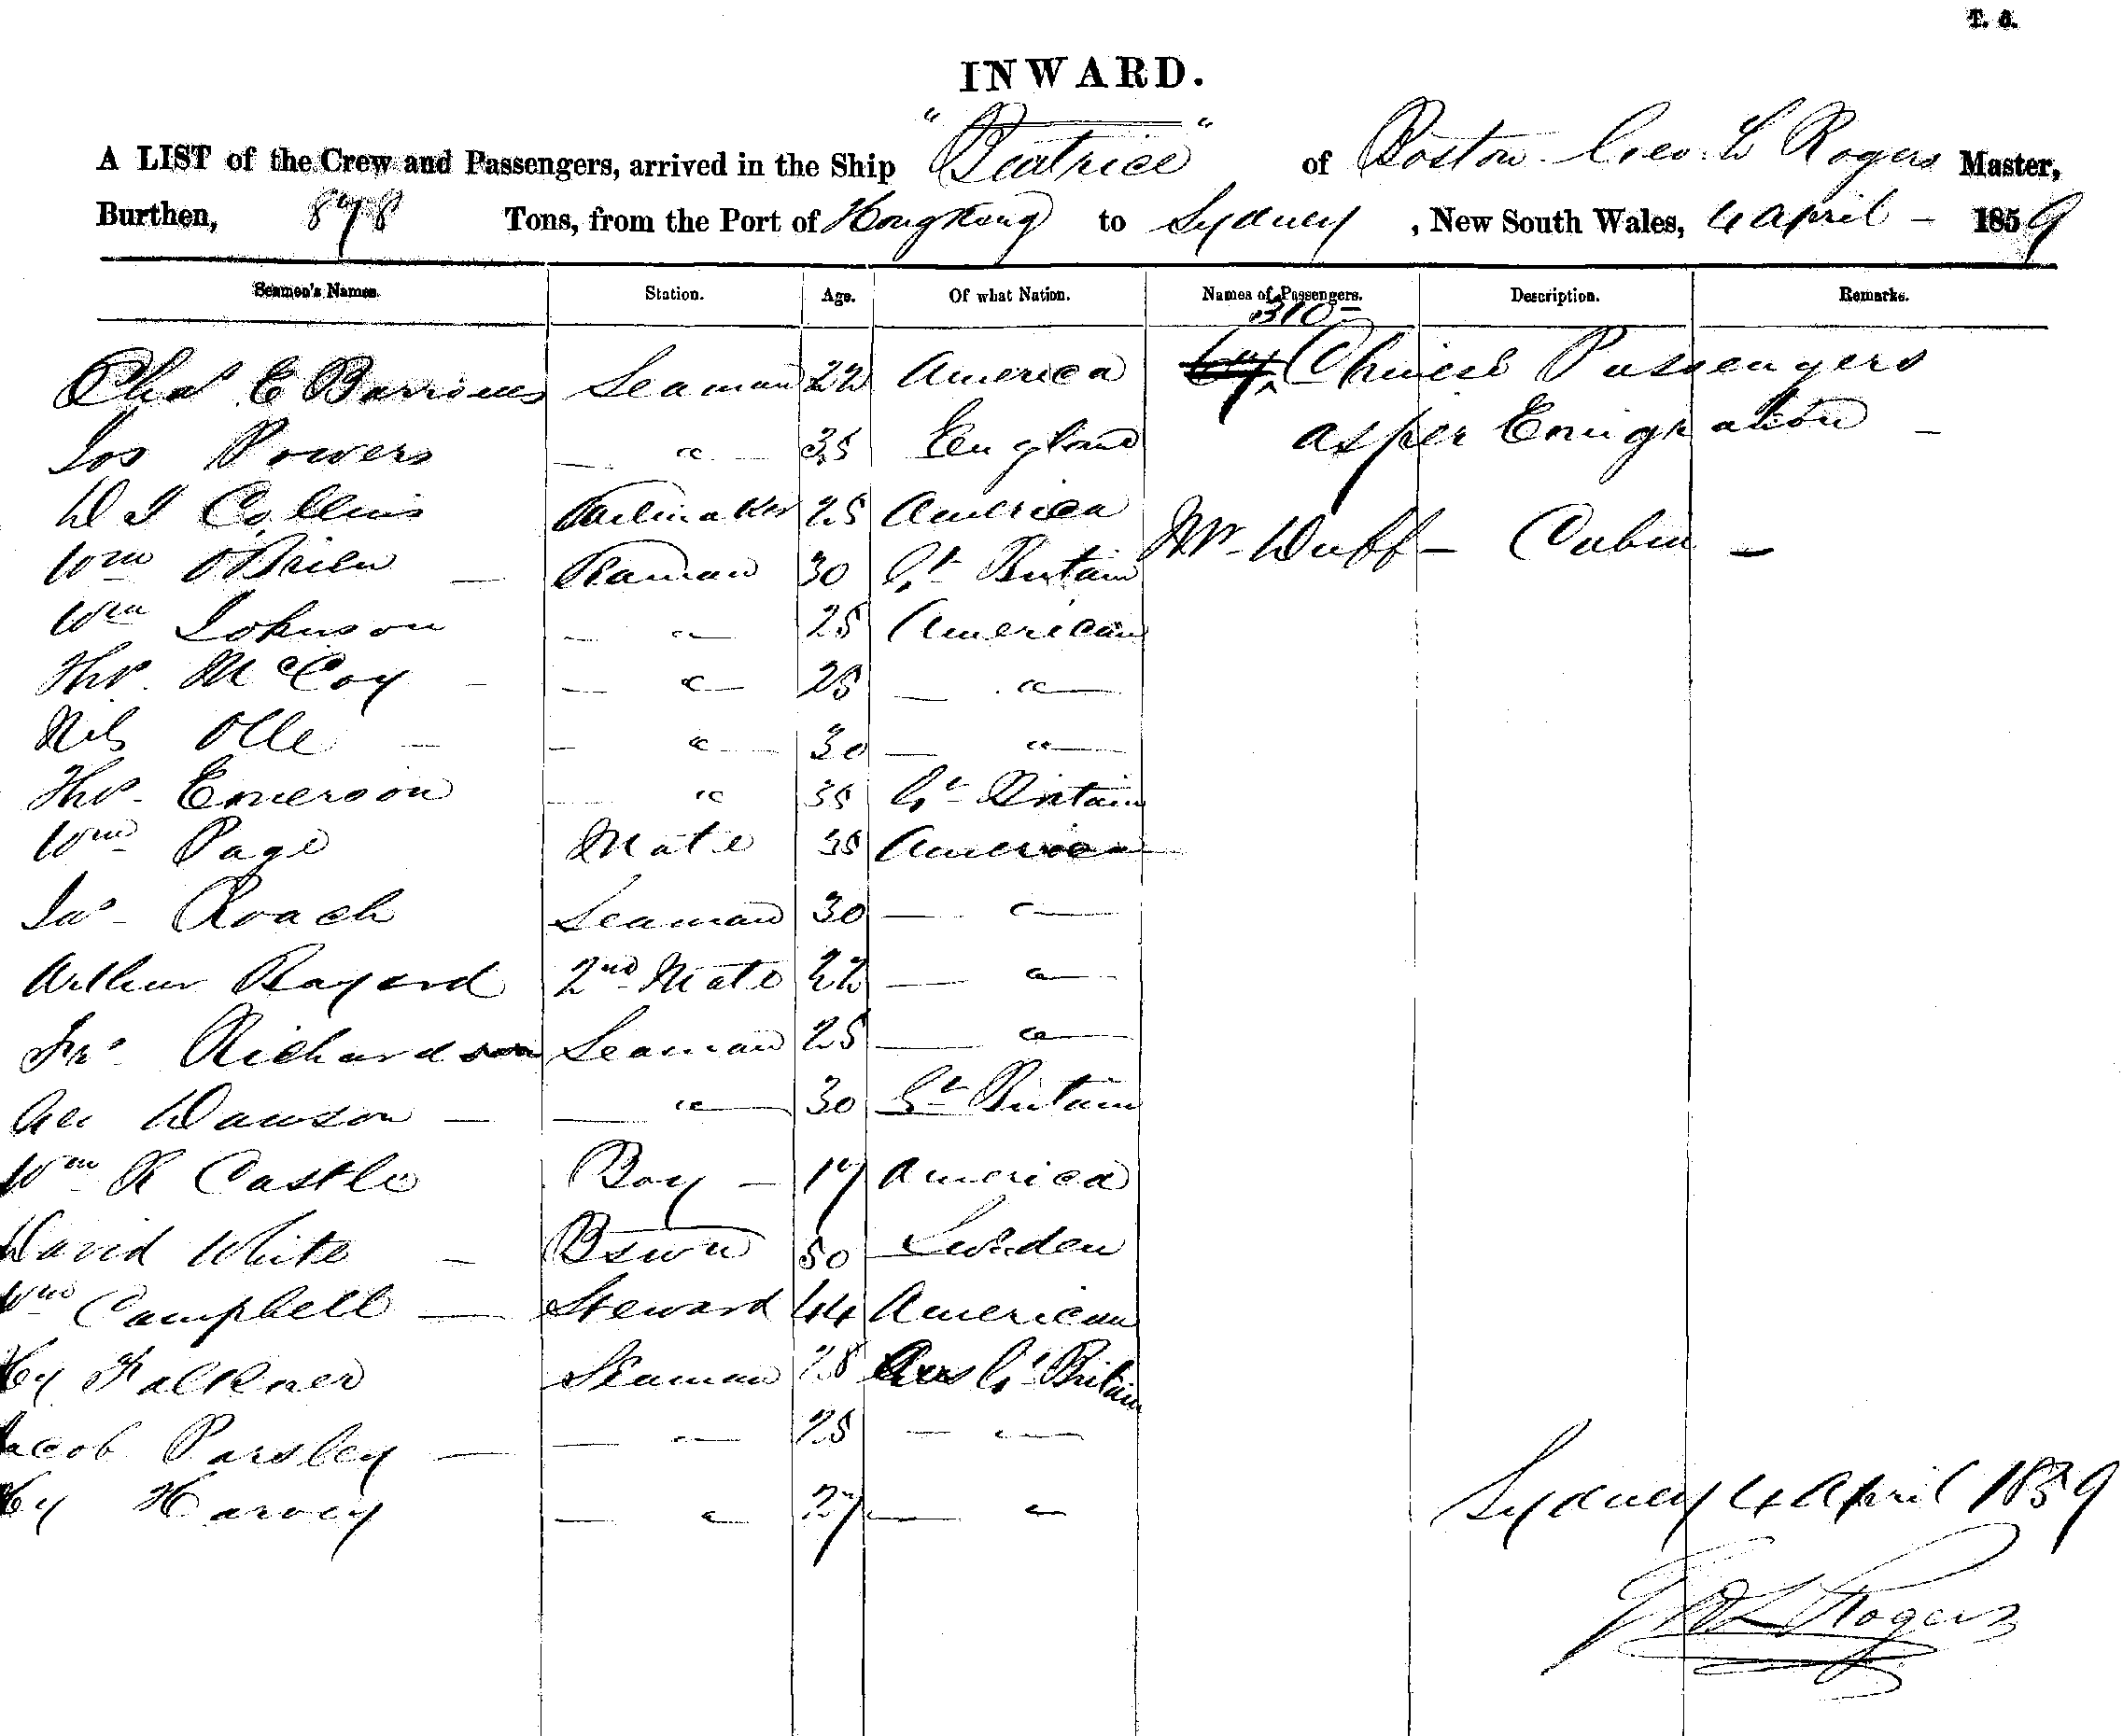 T. 6.
INWARD.
A LIST of the Crew and Passengers, arrived in the Ship "Beatrice" of Boston Geo. L Rogers Master,
Burthen, 878 Tons, from the Port of Hong Kong to Sydney, New South Wales, 4 April - 1859
Seamen's Names. Station. Age. Of what Nation. Names of Passengers. Description. Remarks.
310 -
Chas E Barrows Seaman 22 America Chinese Passengers
Jos Powers — " — 35 England as per Emigration —
D J Collins Sailmaker 25 America
Mr Duff — Cabin —
Wm O'Brien — Seaman 30 Gt Britain
Wm Johnson — " — 25 American
Thos McCoy — — " — 25 — " —
Nils Olle — — " — 30 — " —
Thos Emerson — " 35 Gt Britain
Wm Page Mate 35 American
Jas Roach Seaman 30 — " —
Arthur Bayard 2nd Mate 22 — " —
Richardson Seaman 25 — " —
Dawson — — " — 30 Gt Britain
Wm R Castle Boy — 17 America
David White — Bswn 50 Sweden
Wm Campbell — Steward 44 American
Hy Falkner Seaman 25 Gt Britain
Jacob Parsley — — " — 25 — " —
Hy Harvey — " — 27 — " —
Sydney 4 April 1859
Geo L Rogers